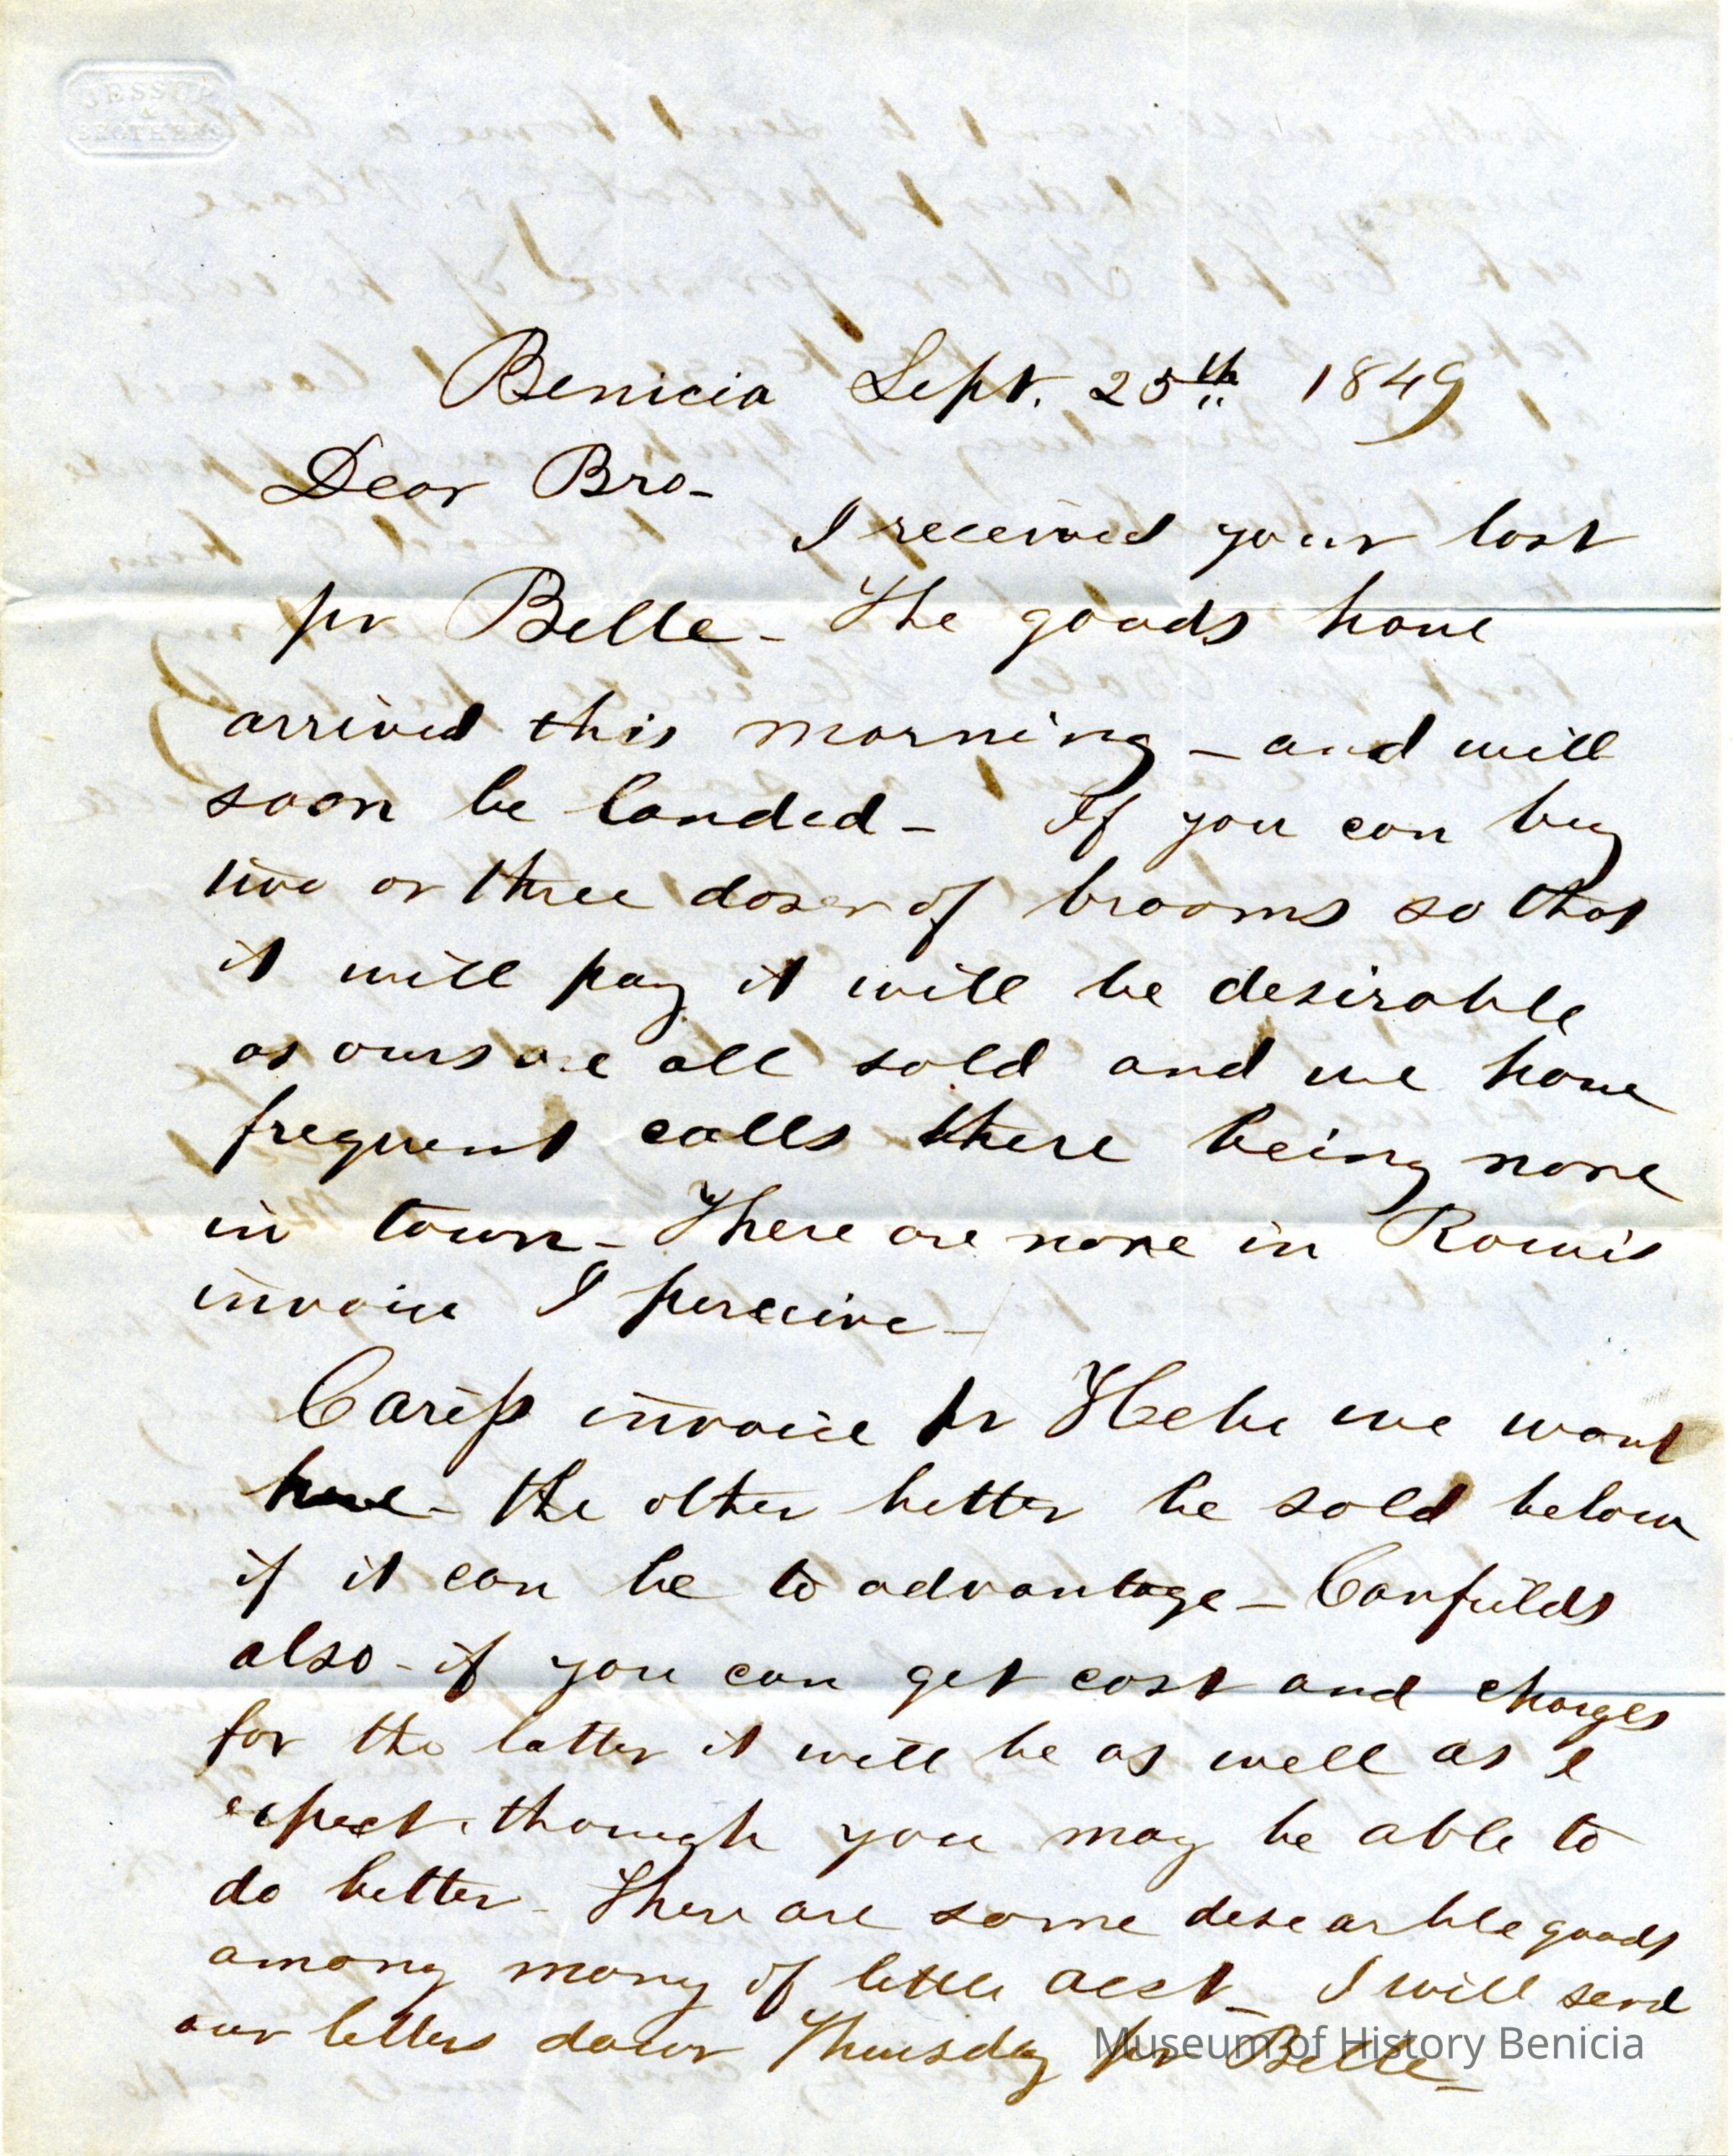 JESSUP
&
BROTHERS
Benicia Sept. 25th 1849
Dear Bro-
I received your last
pr Belle - The goods have
arrived this morning - and will
soon be landed - If you can buy
two or three dozen of brooms so that
it will pay it will be desirable
as ours are all sold and we have
frequent calls there being none
in town - There are none in
invoice I perceive -
invoice pr Hebe we want
here - the other better be sold below
if it can be to advantage - Canfields
also - if you can get cost and charges
for the latter it will be as well as I
expect though you may be able to
do better - There are some desearble goods
among many of little - I will send
our letters down Thursday pr Belle -
Museum of History Benicia